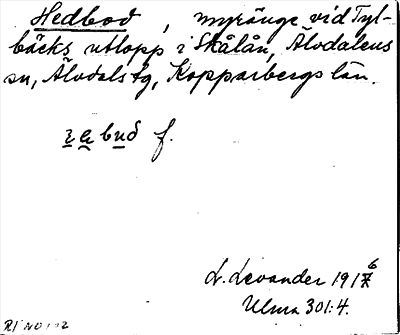 Hedbod, myränge vid Tyl-
bäcks utlopp i Skålån, Älvdalens
sn, Älvdals tg, Kopparbergs län.
f.
L. Levander 1916
Ulma 301:4.